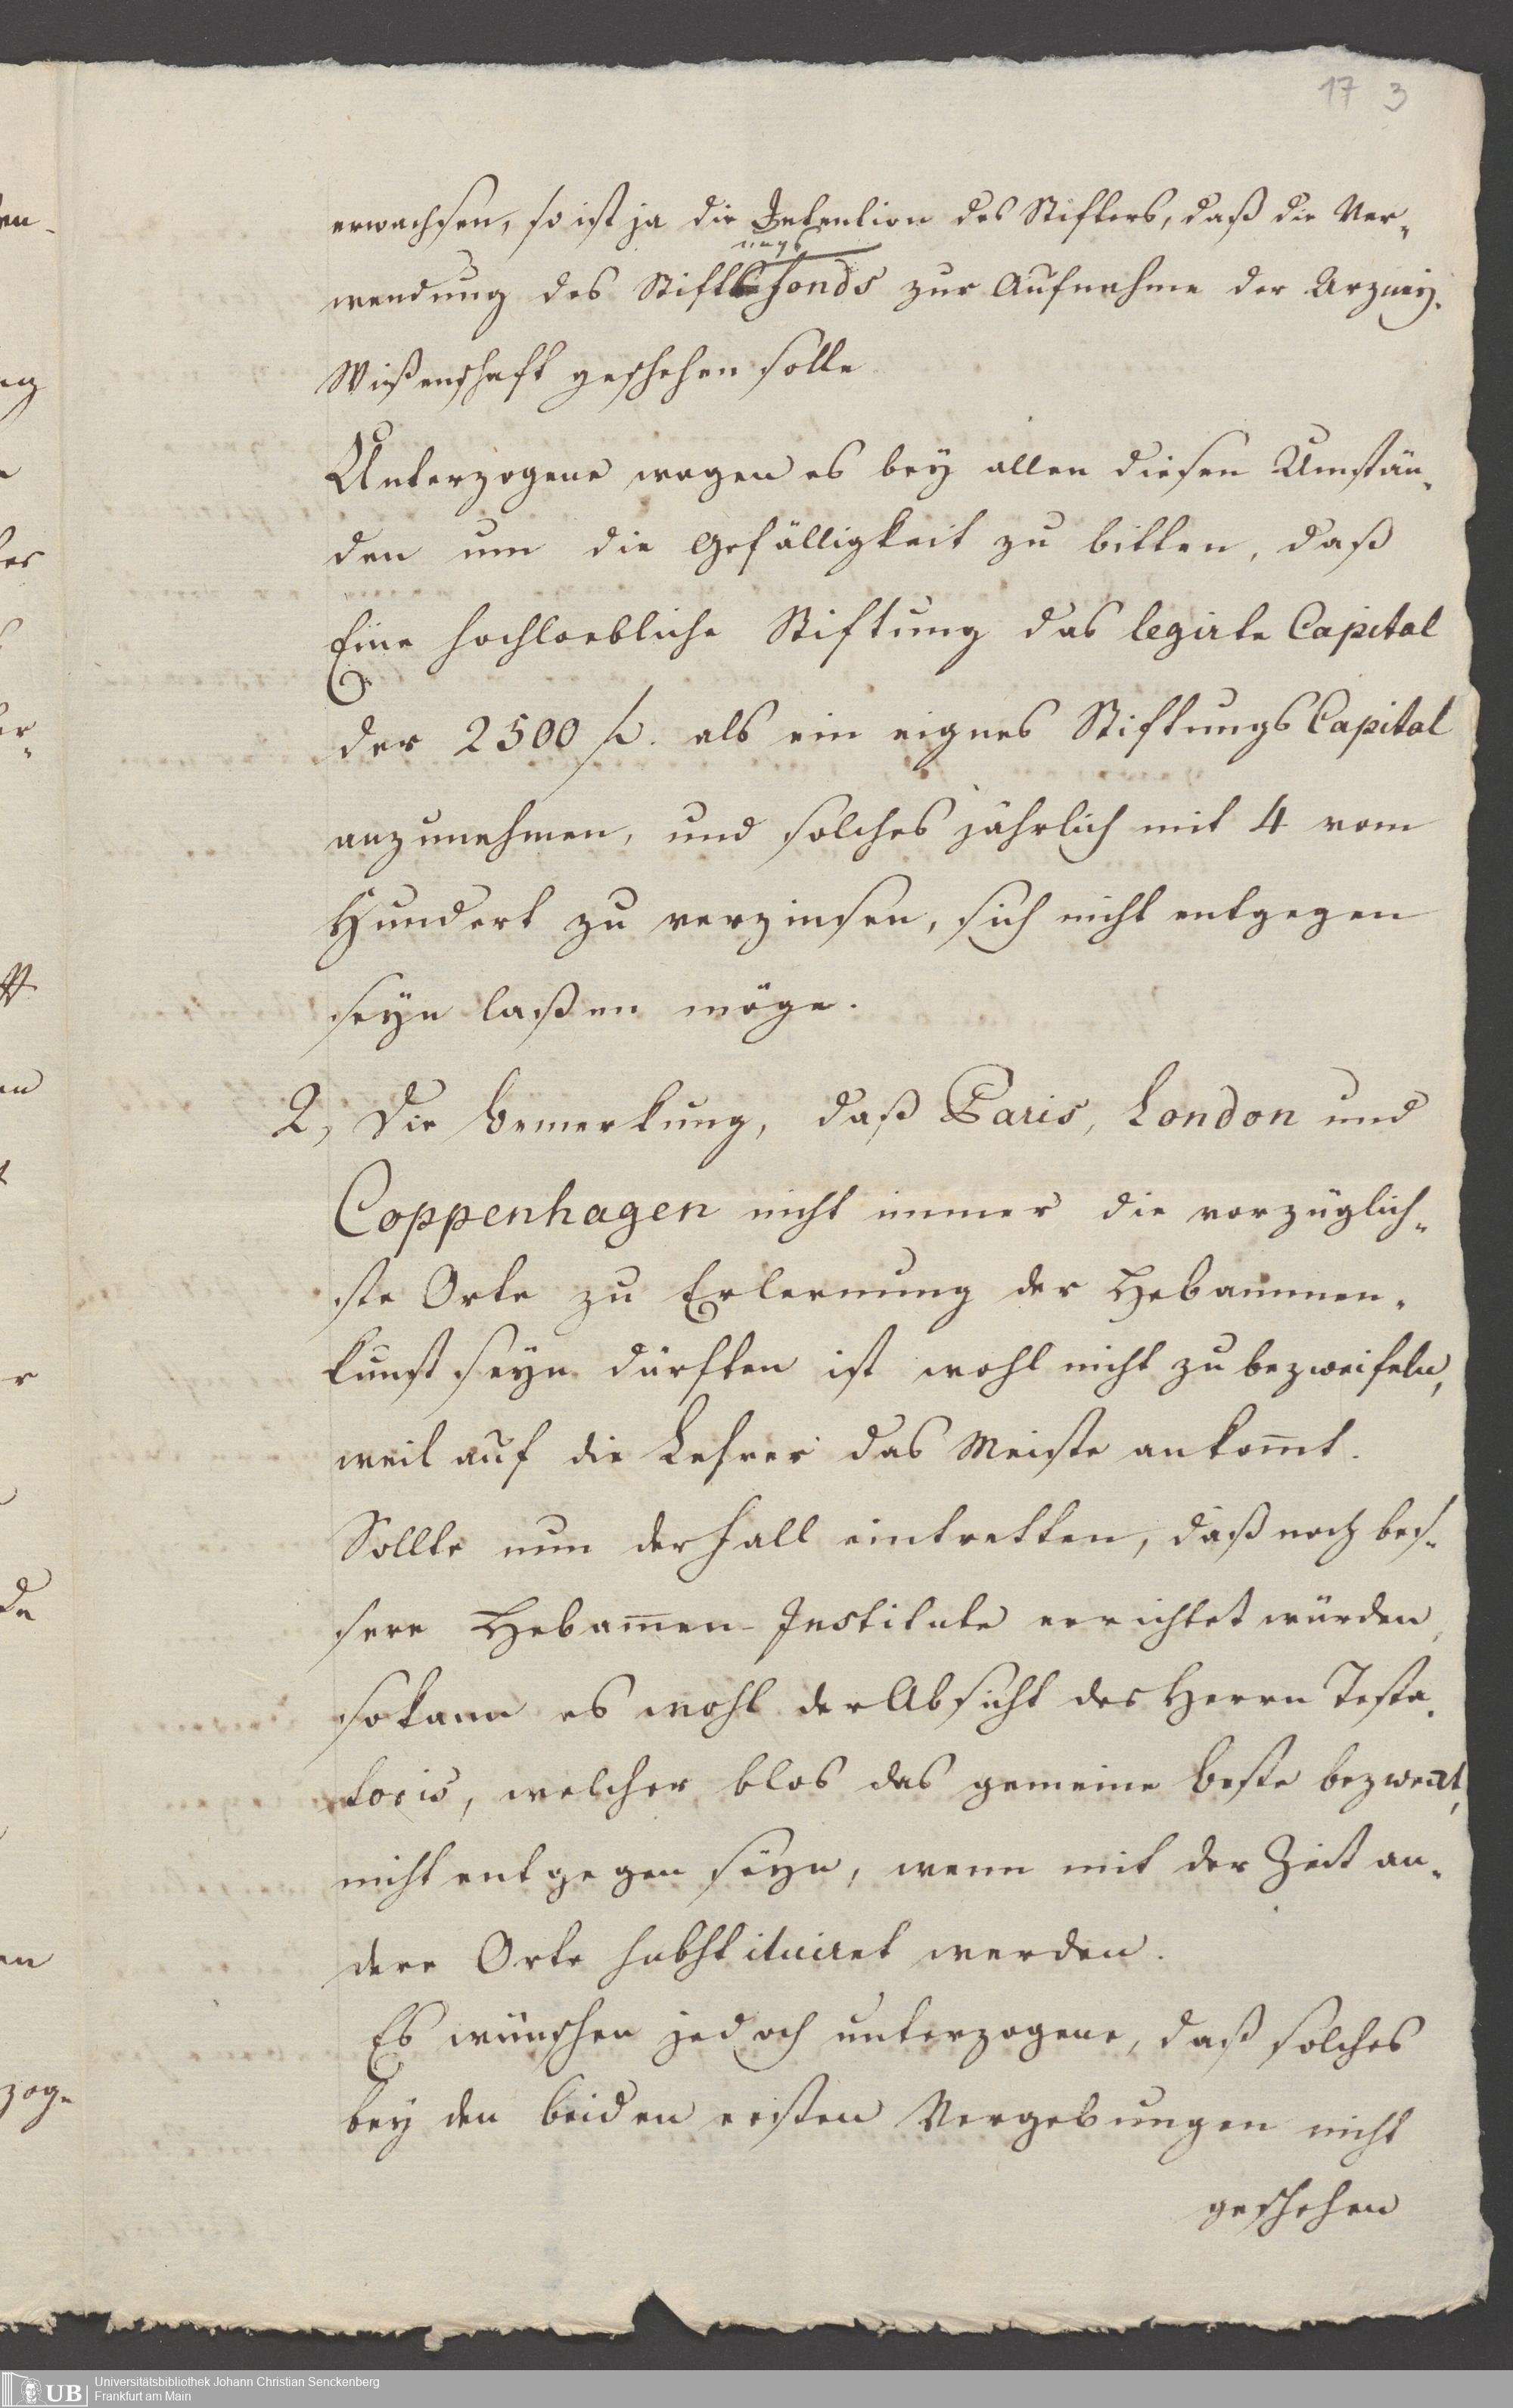 17 3
erwachsen, so ist ja die Intention des Stifters, daß die Ver„
ungs
wendung des Stiftsfonds zur Aufnahme der Arzney„
Wißenschaft geschehen solle
Unterzogene wagen es bey allen diesen Umstän„
den um die Gefälligkeit zu bitten, daß
Eine hochloebliche Stiftung das legirte Capital
der 2500 f. als ein eignes Stiftungs Capital
anzunehmen, und solches jährlich mit 4 vom
Hundert zu verzinsen, sich nicht entgegen
seyn laßen möge.
2, Die Bemerkung, daß Paris, London und
Coppenhagen nicht immer die vorzüglich„
ste Orte zu Erlernung der Hebammen„
kunst seyn dürften ist wohl nicht zu bezweifeln,
weil auf die Lehrer das Meiste ankom̄t.
Sollte nun der Fall eintretten, daß noch bes„
sere Hebam̄en-Institute errichtet würden,
so kann es wohl der Absicht des Herrn Testa„
toris, welcher blos das gemeine Beste bezweckt,
nicht entgegen seyn, wenn mit der Zeit an„
dere Orte substituiret werden.
Es wünschen jedoch unterzogene, daß solches
bey den beiden ersten Vergebungen nicht
geschehen
UB
Universitätsbibliothek Johann Christian Senckenberg
Frankfurt am Main